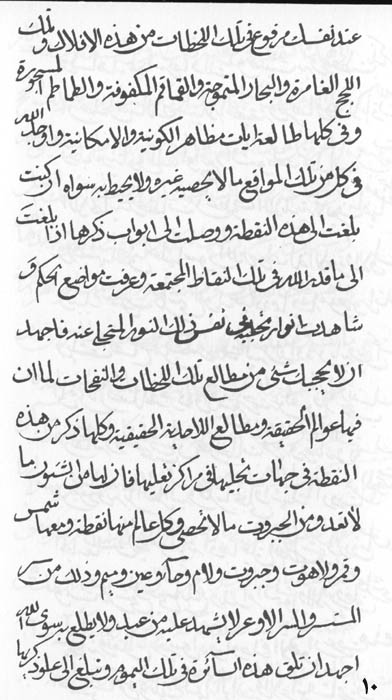 عند نفسك مرفوع في تلك اللحظات من هذه الافلاك و تلك
اللجج الغامرة و البحار المتموجة و القماقم المكفوفة و الطماطم المسجورة
و في كلها طالعة ايات مظاهر الكونية و الامكانية و
في كل من تلك المواقع ما لا يحصيه غيره و لا يحيط به سواه ان كنت
بلغت الى هذه النقطة و وصلت الى ابواب ذكرها اذا بلغت
الى ما قدر الله في تلك النقاط المجتمعة و عرفت مواضع الحكم و
شاهدت انوار نفس ذلك النور المتجلى عنده فاجهد
ان لا يحجبك شئ من مطالع تلك اللحظات و النفحات لما ان
فيها عوالم الحقيقة و مطالع اللاحدية الحقيقية و كلما ذكر من هذه
النقطة في جهات تجليها في مراكز فان لها من الشئون ما
لا تعد و من الجبروت ما لا تحصى و كل عالم منها نقطة و معها شمس
و قمر و لاهوت و جبروت و لام و حاء و عين و ميم و ذلك من
السر لا يشهد عليه من عبد و لا يطلع به سوى الله
اجهد ان تلق هذه في تلك اليموم و تبلغ الى علو ذكرها
١٠